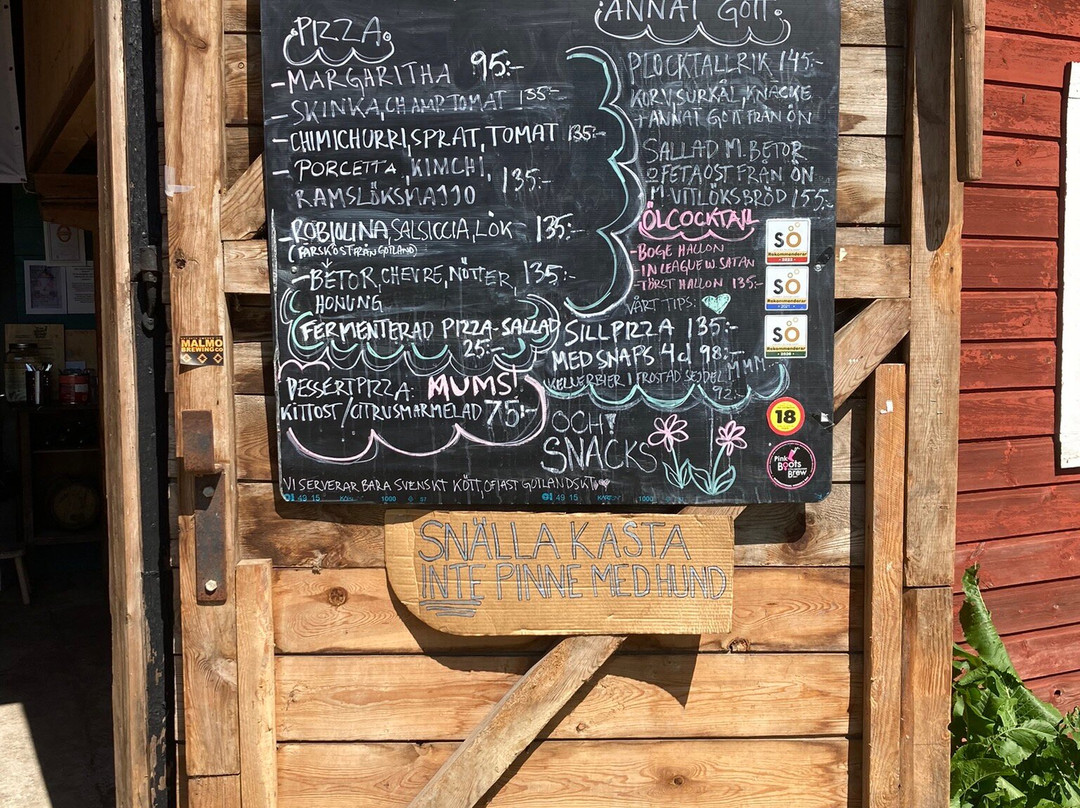 PIZZA
- MARGARITHA 95:-
- SKINKA, CHAMP, TOMAT 135:-
- CHIMICHURRI, SPRAT, TOMAT 135:-
- PORCETTA, KIMCHI,
RAMSLÖKSMAJJO 135:-
- ROBIOLINA SALSICCIA, LÖK 135:-
(FÄRSKOST FRÅN GOTLAND)
- BETOR, CHEVRE, NÖTTER, 135:-
HONUNG
FERMENTERAD PIZZA-SALLAD
25:-
DESSERTPIZZA: MUMS!
KITTOST/CITRUSMARMELAD 75:-
VI SERVERAR BARA SVENSKT KÖTT, OFTAST GOTLÄNDSKT
ANNAT GOTT
PLOCKTALLRIK 145:-
KORV, SURKÅL, KNÄCKE
+ ANNAT GOTT FRÅN ÖN
SALLAD M. BETOR
O FETAOST FRÅN ÖN
M. VITLÖKSBRÖD 155:-
ÖLCOCKTAIL
- BOGE HALLON
- IN LEAGUE W. SATAN
- TÖRST HALLON 135:-
VÅRT TIPS:
SILLPIZZA 135:-
MED SNAPS 4cl 98:-
KELLERBIER I FROSTAD SEJDEL MMM..
92:-
OCH
SNACKS
SÖ
Rekommenderar
SÖ
Rekommenderar
SÖ
Rekommenderar
18
Pink
Boots
Brew
MALMÖ
BREWING CO
49 15
1000
49 15
1000
SNÄLLA KASTA
INTE PINNE MED HUND